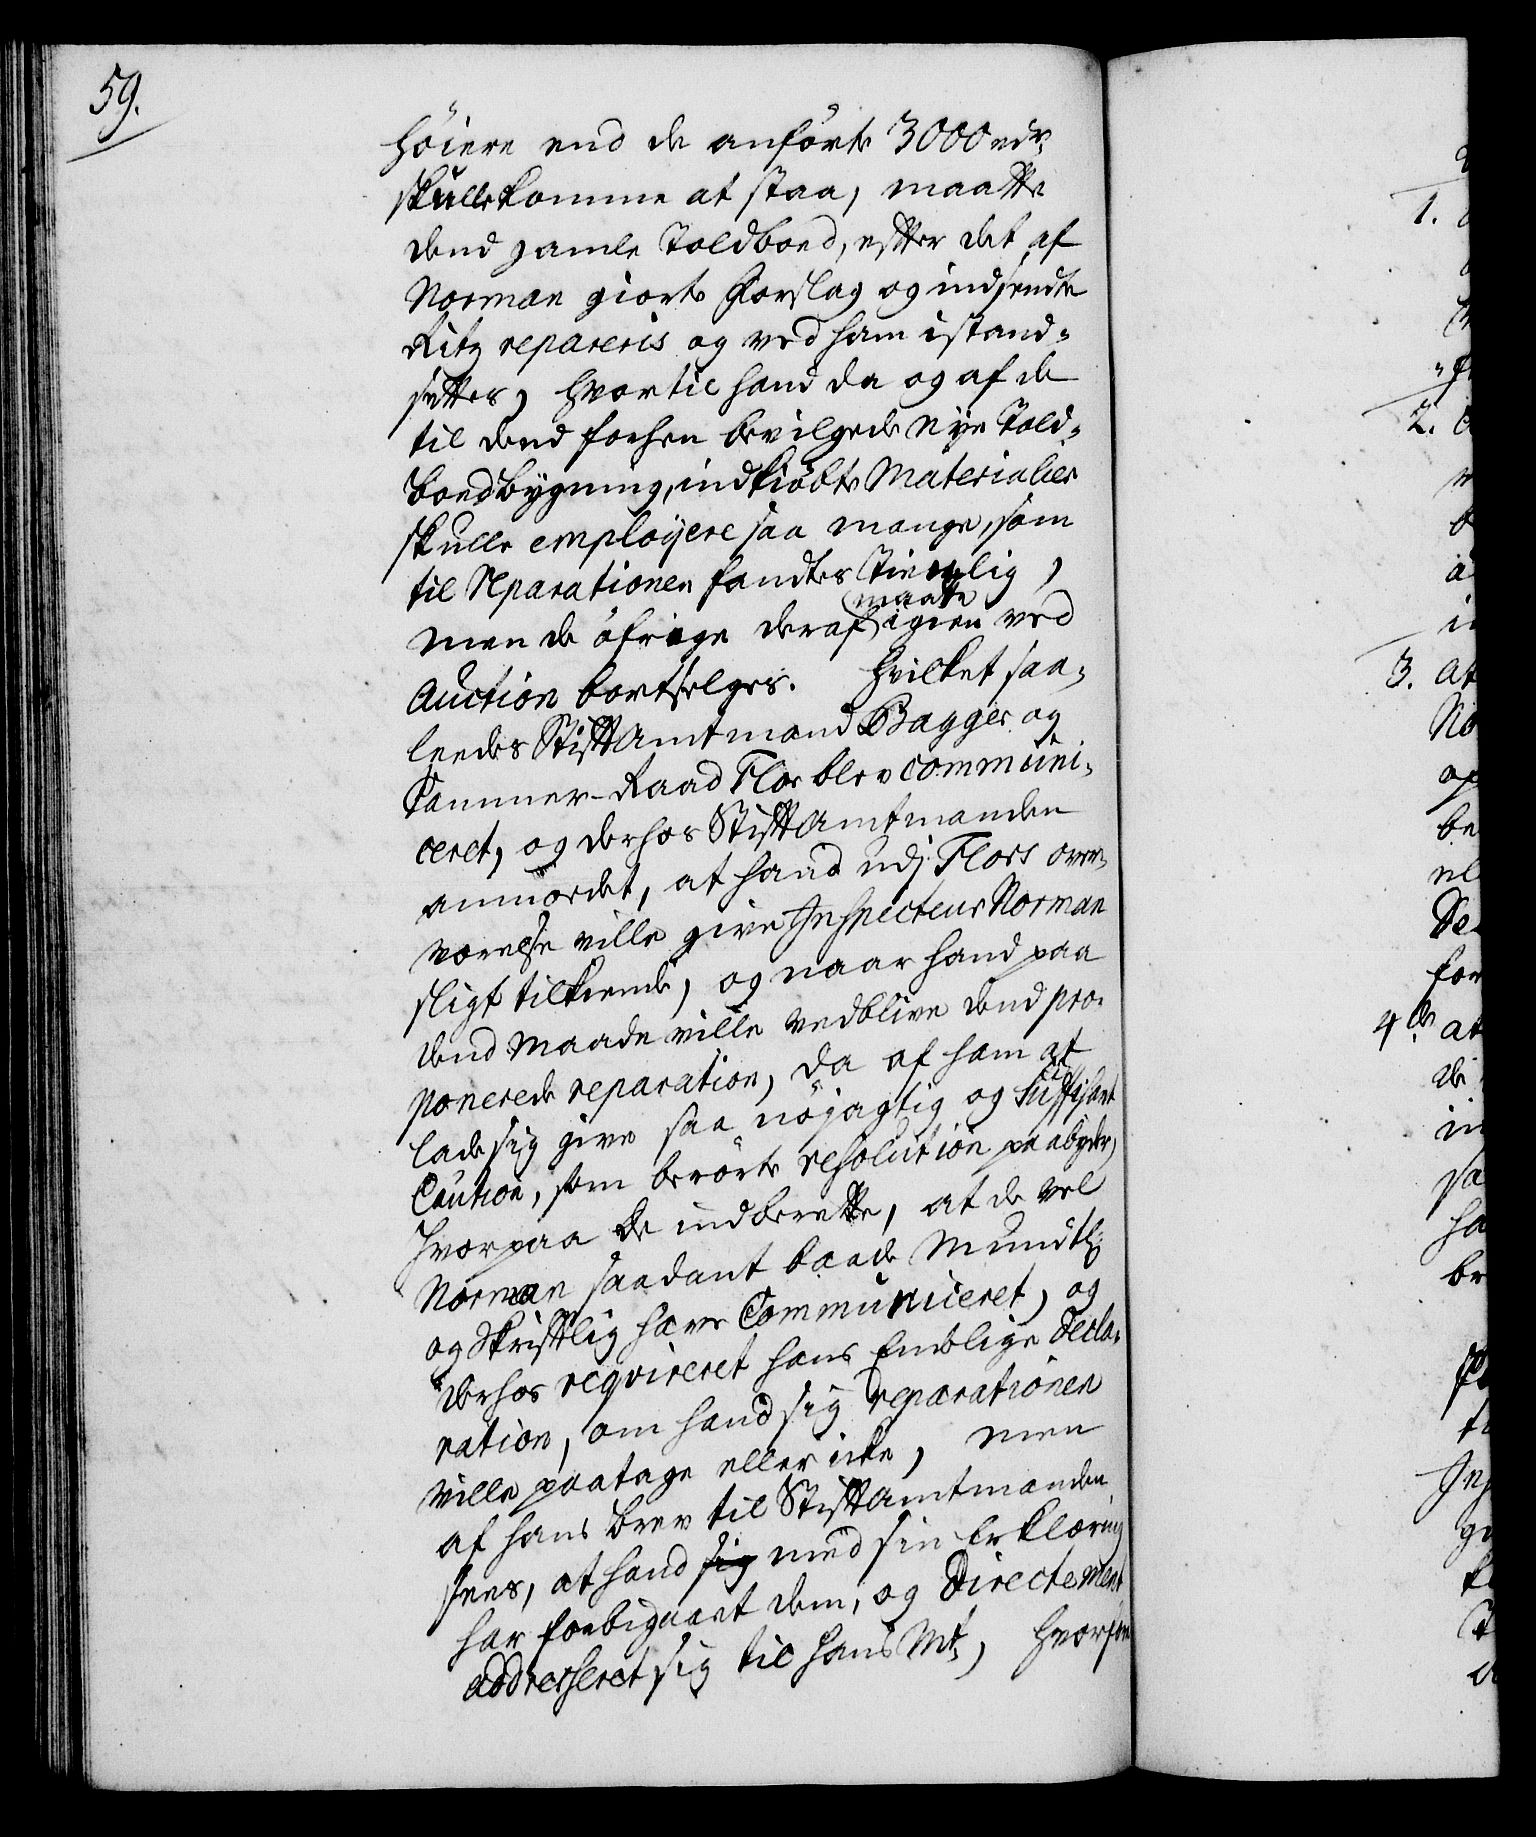 59.
höiere end de anförte 3000 rdr.
skulle komme at staa, maatte
dend gamle Toldboed, efter det af
Norman giorte Forslag og indsendte
Ritz repareris og ved ham istand-
settes, hvortil hand da og af de
til dend forhen bevilgede Nye Told-
boedbygning, indkiöbte Materialier
skulle employere saa mange, som
til Reparationen fandtes tienlig,
men de öfrige deraf maatte igien ved
Auction bortselges. Hvilket saa-
leedes StiftAmtmand Bagger og
Cammer-Raad Flor blev communi-
ceret, og derhos StiftAmtmanden
anmodet, at hand udj Flors over-
værelse ville give Inspecteur Norman
sligt tilkiende, og naar hand paa
dend Maade ville vedblive dend pro-
ponerede reparation, da af ham at
lade sig give saa nöjagtig og Suffisant
Caution, som berörte resolution paabyder,
hvorpaa de indberette, at de vel
Norman saadant baade Mundtl:
og Skriftlig have Communiceret, og
derhos reqvireret hans Endlige Decla-
ration, om hand sig reparationen
ville paatage eller icke, men
af hans brev til StiftAmtmanden
sees, at hand sig med sin Erklæring
har forbigaaet dem, og Directement
addresseret sig til Hans Mt, hvorfor
1.
2.
3. at
No
op
be
De
for
4de at
de
in
sa
ha
br